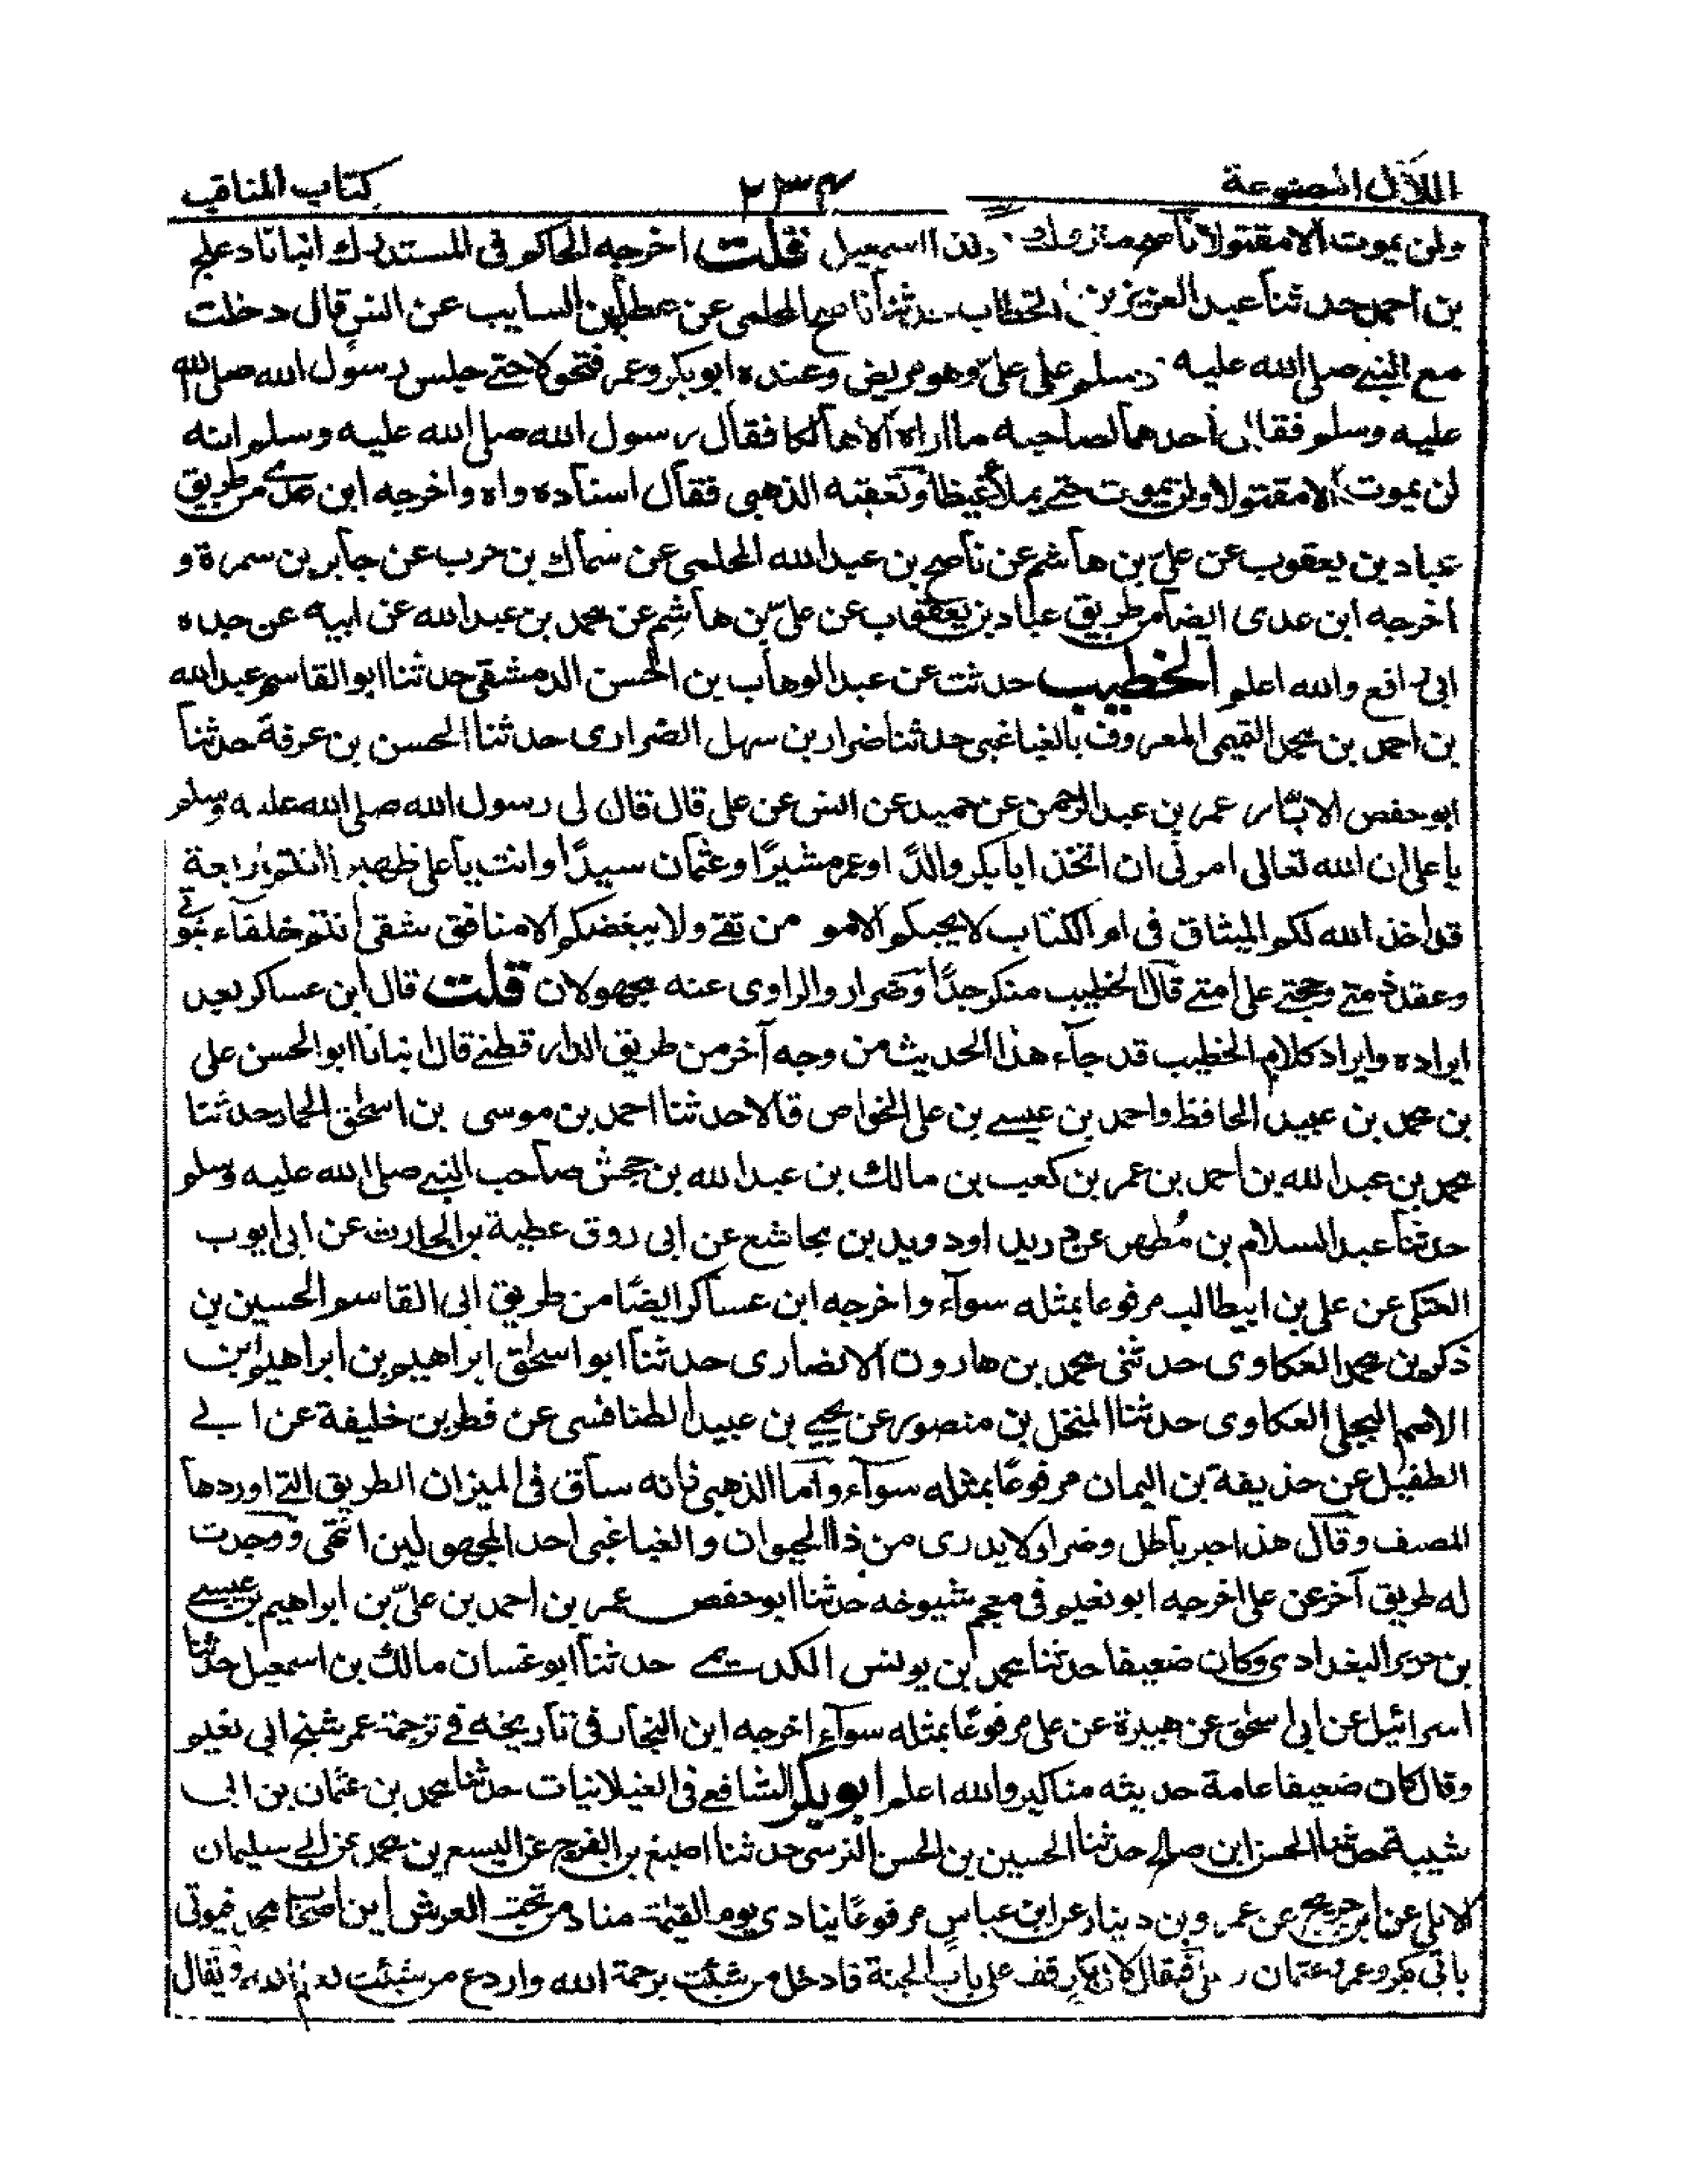 اللآلى المصنوعة ٢٣٤ كتاب المناقب
ولن يموت الا مقتولا ناصح متروك اسمعيل قلت اخرجه الحاكم فى المستدرك انبانا دعلج
بن احمد حدثنا عبد العزيز بن الخطاب حدثنا ناصح المحلمى عن عطاء بن السايب عن انس قال دخلت
مع النبى صلى الله عليه وسلم على علىّ وهو مريض وعنده ابو بكر وعمر فتحولا حتى جلس رسول الله صلى الله
عليه وسلم فقال احدهما لصاحبه ما اراه الا هالكا فقال رسول الله صلى الله عليه وسلم انه
لن يموت الا مقتولا ولن يموت حتى يملأ غيظا وتعقبه الذهبى فقال اسناده واه واخرجه ابن عدى من طريق
عباد بن يعقوب عن علىّ بن هاشم عن ناصح بن عبد الله المحلمى عن سماك بن حرب عن جابر بن سمرة و
اخرجه ابن عدى ايضا من طريق عباد بن يعقوب عن علىّ بن هاشم عن محمد بن عبد الله عن ابيه عن جده
ابى رافع والله اعلم الخطيب حدثت عن عبد الوهاب بن الحسن الدمشقى حدثنا ابو القاسم عبد الله
بن احمد بن محمد التميمى المعروف بالغباغبى حدثنا ضرار بن سهل الضرارى حدثنا الحسن بن عرفة حدثنا
ابو حفص الابّار عمر بن عبد الرحمن عن حميد عن انس عن على قال قال لى رسول الله صلى الله عليه وسلم
يا على ان الله تعالى امرنى ان اتخذ ابا بكر والدًا وعمر مشيرًا وعثمان سيدًا وانت يا على ظهيرا انتم اربعة
قد اخذ الله لكم الميثاق فى ام الكتاب لا يحبكم الا مو من تقى ولا يبغضكم الا منافق شقى انتم خلفاء نبوتى
وعقد ذمتى وحجتى على امتى قال الخطيب منكر جدًّا وضرار والراوى عنه مجهولان قلت قال ابن عساكر بعد
ايراده وايراد كلام الخطيب قد جآء هذا الحديث من وجه آخر من طريق الدارقطنى قال انبانا ابو الحسن على
بن محمد بن عبيد الحافظ واحمد بن عيسى بن على الخواص قالا حدثنا احمد بن موسى بن اسحٰق الحمار حدثنا
محمد بن عبد الله بن احمد بن عمر بن كعب بن مالك بن عبد الله بن جحش صاحب النبى صلى الله عليه وسلم
حدثنا عبد السلام بن مُطهر عن دريد او دويد بن مجاشع عن ابى روق عطية بن الحارث عن ابى ايوب
العتكى عن على بن ابيطالب مرفوعا بمثله سوآء واخرجه ابن عساكر ايضًا من طريق ابى القاسم الحسين بن
ذكر بن محمد العكاوى حدثنى محمد بن هارون الانصارى حدثنا ابو اسحٰق ابراهيم بن ابراهيم ابن
الاصم البجلى العكاوى حدثنا المنخل بن منصور عن يحيى بن عبيد الطنافسى عن فطر بن خليفة عن ابى
الطفيل عن حذيفة بن اليمان مرفوعًا بمثله سوآء وآما الذهبى فانه ساق فى الميزان الطريق التى اوردها
المصنف وقال هذا خبر باطل وضرار لا يدرى من ذا الحيوان والغباغبى احد المجهولين انتهى ووجدت
له طريق آخر عن على اخرجه ابو نعيم فى معجم شيوخه حدثنا ابو حفص عمر بن احمد بن علىّ بن ابراهيم بن عيسى
بن جرير البغدادى وكان ضعيفا حدثنا محمد بن يونس الكديمى حدثنا ابو غسان مالك بن اسمعيل حدثنا
اسرائيل عن ابى اسحٰق عن هبيرة عن على مرفوعًا بمثله سوآء اخرجه ابن النجار فى تاريخه فى ترجمة عمر شيخ ابى نعيم
وقال كان ضعيفا عامة حديثه مناكير والله اعلم ابو بكر الشافعى فى الغيلانيات حدثنا محمد بن عثمان بن ابى
شيبة حدثنا الحسن ابن صالح حدثنا الحسين بن الحسن النرسى حدثنا اصبغ بن الفرج عن اليسع بن محمد عن ابى سليمان
الايلى عن ابن جريج عن عمرو بن دينار عن ابن عباس مرفوعًا ينادى يوم القيٰمة مناد من تحت العرش اين اصحاب محمد فيوتى
بابى بكر وعمر وعثمان وعلى فيقال لابى بكر قف على باب الجنة فادخل من شئت برحمة الله واردع من شئت بعلم الله ويقال